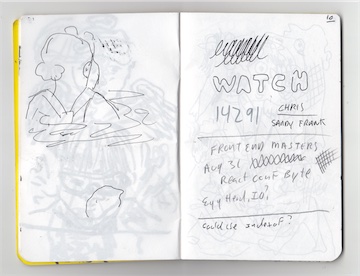 10
WATCH
14291 CHRIS
SANDY FRANK
FRONT END MASTERS
Aug 31
React Conf Byte
Egg Head, IO?
Could use indexof?